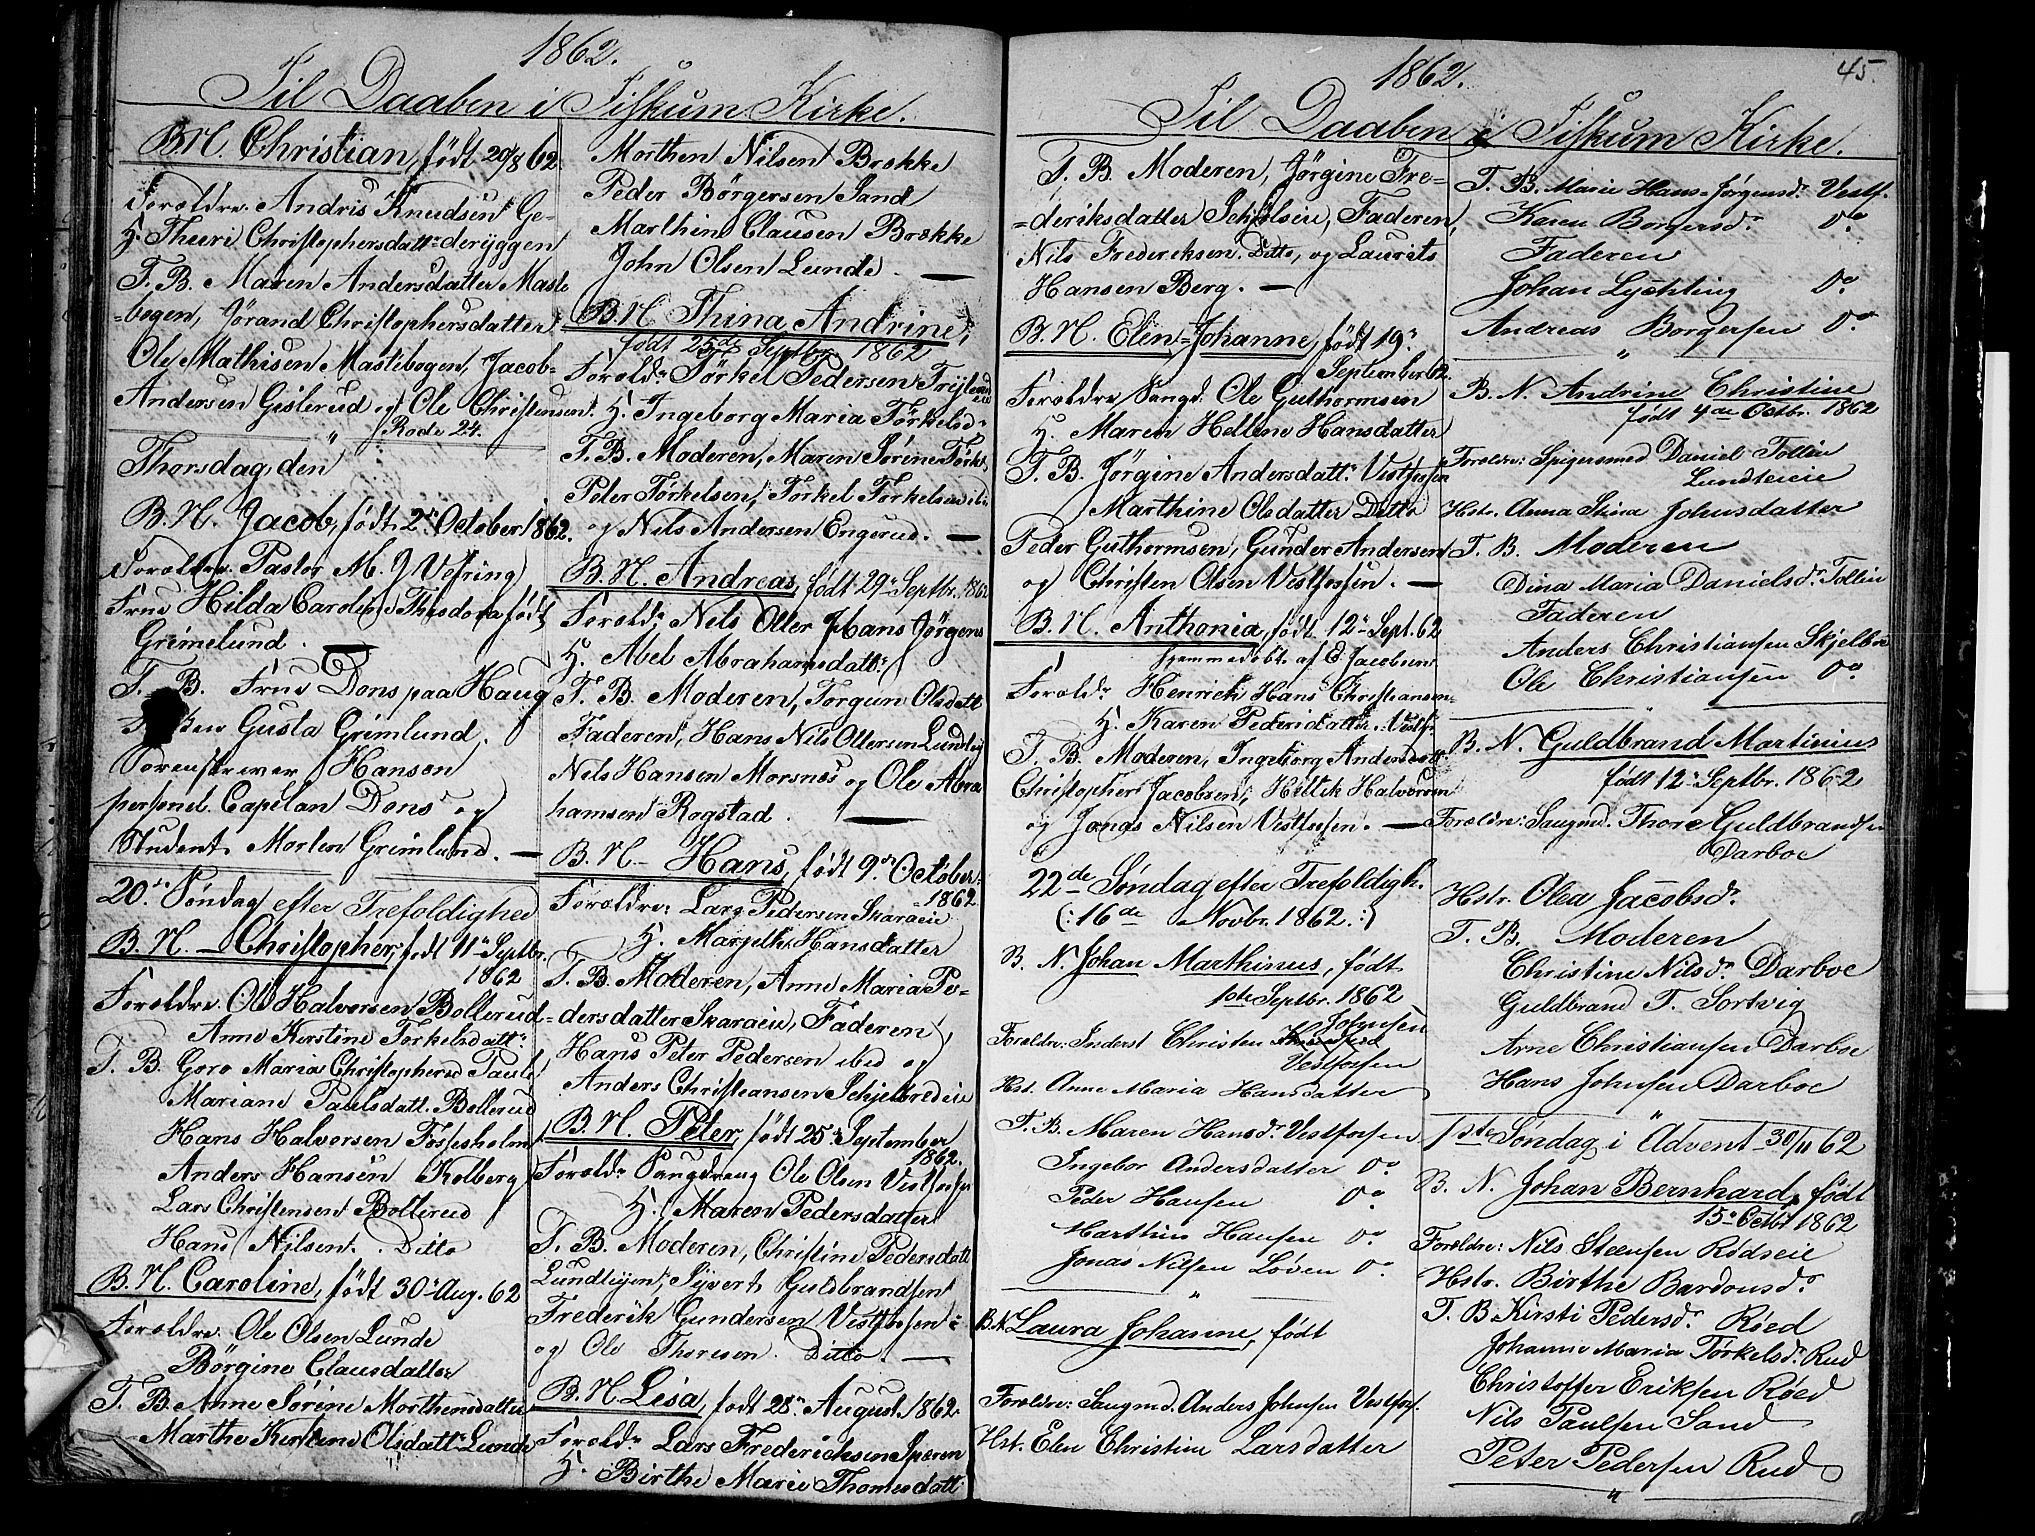 1862.
Til Daaben i Fiskum Kirke.
B.N. Christian, født 20/8 62.
Forældre. Andris Knudsen Ge-
H. Thuri Christophersdattr deryggen
T. B. Maren Andersdatter Maste
=bogen, Jørand Christophersdatter
Ole Mathisen Mastebogen, Jacob
Andersen Gislerud og Ole Christensen
Rode 24.
Thorsdag, den
B.N. Jacob, født 2n October 1862.
Forældre. Pastor M. J Vefring
Frue Hilda Caroline Thesdora født
Grimelund.
T. B. Frue Dons paa Haug
Gusta Grimlund,
Sorenskriver Hansen
personel. Capelan Dons og
Student Morten Grimlund. —
20de Søndag efter Trefoldighed
B.N. — Christopher, født 11n Septbr.
1862
Forældre. Ole Halversen Bollerud
Anne Kerstine Torkelsdattr
T. B. Goro Maria Christophersd Paule
Mariane Paulsdatt. Bollerud
Hans Halversen Fossesholm
Anders Hansen Kolberg
Lars Christensen Bollerud
Hans Nilsen. Ditto
B.N. Caroline, født 30n Aug. 62
Forældre. Ole Olsen Lunde
Børgine Clausdatter
T. B. Anne Sørine Morthensdatter
Marthe Kirstine Olsdattr Lunde
Morthen Nilsen Brække
Peder Börgersen Sand
Marthin Clausen Brække
John Olsen Lunde. —
B.N. Thina Andrine,
født 25de Septbr 1862
Foreldr Törkel Pedersen
H. Ingeborg Maria Törkelsdr
T. B. Moderen, Maren Sörine Törks.
Peter Törkelsen, Torkel Torkelsen ibd
og Nils Andersen Engerud. —
B.N. Andreas, født 29n Septbr. 1862
Foreldr, Nels Otter Hans Jörgens
H. Abel Abrahamsdattr
T. B. Moderen, Torgun Olsdatt
Faderen, Hans Nils Ottersen
Nels Hansen Morsnes og Ole Abra
hamsen Rogstad. —
B.N. — Hans, født 9de October
1862
Forældre: Lars Pedersen Skaraeie
H. Margethe Hansdatter
T. B. Moderen, Anne Maria Pe-
=dersdatter Skaraeie, Faderen,
Hans Peter Pedersen ibed og
Anders Christiansen
B.N. Peter, født 25n September
1862.
Foreldr Saugdreng Ole Olsen Vestfossen
H. Maren Pedersdatter
T. B. Moderen, Christine Pedersdatt
Syvert Guldbrandsen
Frederik Gundersen Vestfossen
og Ole Thoresen. Ditto. —
B.N. Lisa, født 28n August 1862.
Foreldr Lars Fredericksen
H. Birthe Marie Thomesdatt
1862.
45.
Til Daaben i Fiskum Kirke.
T. B. Moderen, Jörgine Fre=
=deriksdatter, Faderen,
Nils Frederiksen. Ditto, og Laurits
Hansen Berg. —
B.N. Elen=Johanne, født 19n
September 62.
Forældre Saugd. Ole Guthormsen
H. Maren Hellene Hansdatter
T. B. Jörgine Andersdattr Vestfossen
Marthine Olsdatter Ditto
Peder Guthormsen, Gunder Andersen
og Christen Olsen Vestfossen. —
B.N. Anthonia, født 12n Sept. 62
hjemmedöbt af E Jacobsen
Foreldr Henrich Hans Christiansen
H. Karen Pedersdatter. Vestfs.
T. B. Moderen, Ingeborg Andersdatt
Christopher Jacobsen, Hellik Halvorsen
og Jonas Nilsen Vestfossen. —
22de Søndag efter Trefoldigh.
(:16de Novbr. 1862.:)
B. N. Johan Marthinus, født
1ste Septbr. 1862
Johnsen
Forældre: Inderst Christen
Vestfossen
Hst. Anne Maria Hansdatter
T. B. Maren Hansdr Vestfossen
Ingebor Andersdatter Do
Peder Hansen Do
Marthin Hansen Do
Jonas Nilsen Løven Do
"
B.N. Laura Johanne, født
Forældre: Saugmd. Anders Johnsen Vestfos.
Hst. Elen Christine Larsdatter
T. B. Marie Hans-Jørgensdr Vestf.
Karen Borgersdr Do
Faderen
Johan Lychting Do
Andreas Borgersen Do
"
B. N. Andrine Christine
født 4de Octbr. 1862
Forældre: Spigersmed Daniel Tollin
Lundteeie
Hstr. Anna Stina Johnsdatter
T. B. Moderen
Dina Maria Danielsdr Tollin
Faderen
Anders Christiansen
Ole Christiansen Do
"
B. N. Guldbrand Martinius
født 12n Septbr. 1862
Forældre: Saugmd. Thore Guldbrandsen
Darboe
Hstr. Olea Jacobsdr
T. B. Moderen
Christine Nilsdr Darboe
Guldbrand T. Sortvig
Arne Christiansen Darboe
Hans Johnsen Darboe
"
1ste Søndag i Advent 30/11 62
B. N. Johan Bernhard, født
15n Octbr 1862
Forældre: Nils Steensen Rødseie
Hstr. Birthe Bardonsdr
T. B Kirsti Pedersdr Røed
Johanne Maria Törkelsdr Rud
Christoffer Eriksen Røed
Nils Paulsen Sand
Peter Pedersen Rud
"